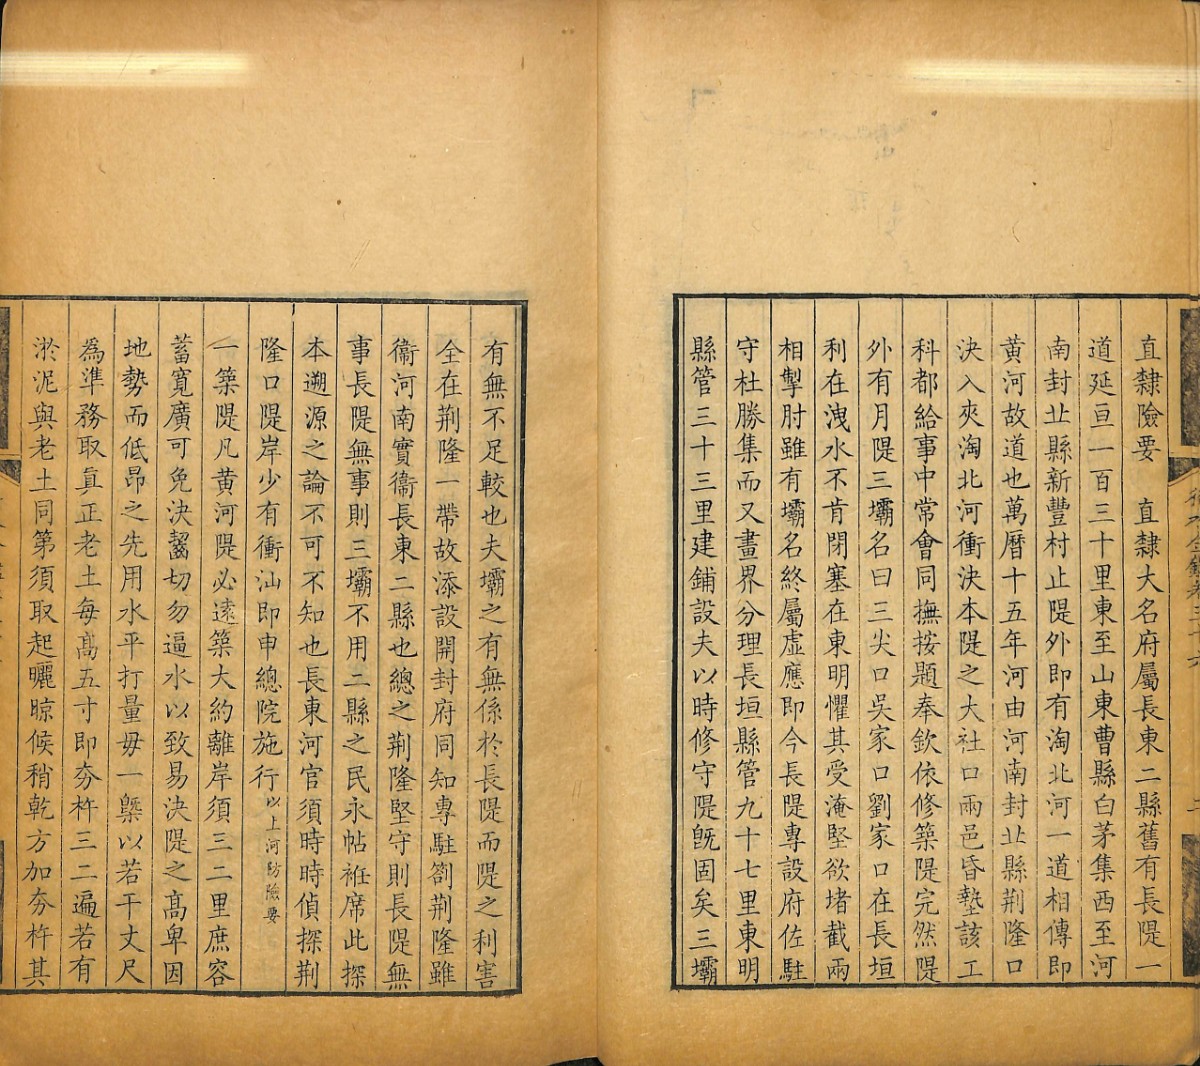 直隸險要　直隸大名府屬長東二縣舊有長隄一
道延亘一百三十里東至山東曹縣白茅集西至河
南封丘縣新豐村止隄外即有淘北河一道相傳即
黃河故道也萬曆十五年河由河南封丘縣荆隆口
決入夾淘北河衝決本隄之大社口兩邑昏墊該工
科都給事中常會同撫按題奉欽依修築隄完然隄
外有月隄三壩名曰三尖口吳家口劉家口在長垣
利在洩水不肯閉塞在東明懼其受淹堅欲堵截兩
相掣肘雖有壩名終屬虛應即今長隄專設府佐駐
守杜勝集而又畫界分理長垣縣管九十七里東明
縣管三十三里建鋪設夫以時修守隄旣固矣三壩
有無不足較也夫壩之有無係於長隄而隄之利害
全在荆隆一帶故添設開封府同知專駐劄荆隆雖
衞河南實衞長東二縣也總之荆隆堅守則長隄無
事長隄無事則三壩不用二縣之民永帖袵席此探
本遡源之論不可不知也長東河官須時時偵探荆
隆口隄岸少有衝汕即申總院施行以上河防險要
一築隄凡黃河隄必遠築大約離岸須三二里庶容
蓄寬廣可免決齧切勿逼水以致易決隄之高卑因
地勢而低昂之先用水平打量毋一槩以若干丈尺
為準務取真正老土每高五寸即夯杵三二遍若有
淤泥與老土同第須取起曬晾候稍乾方加夯杵其